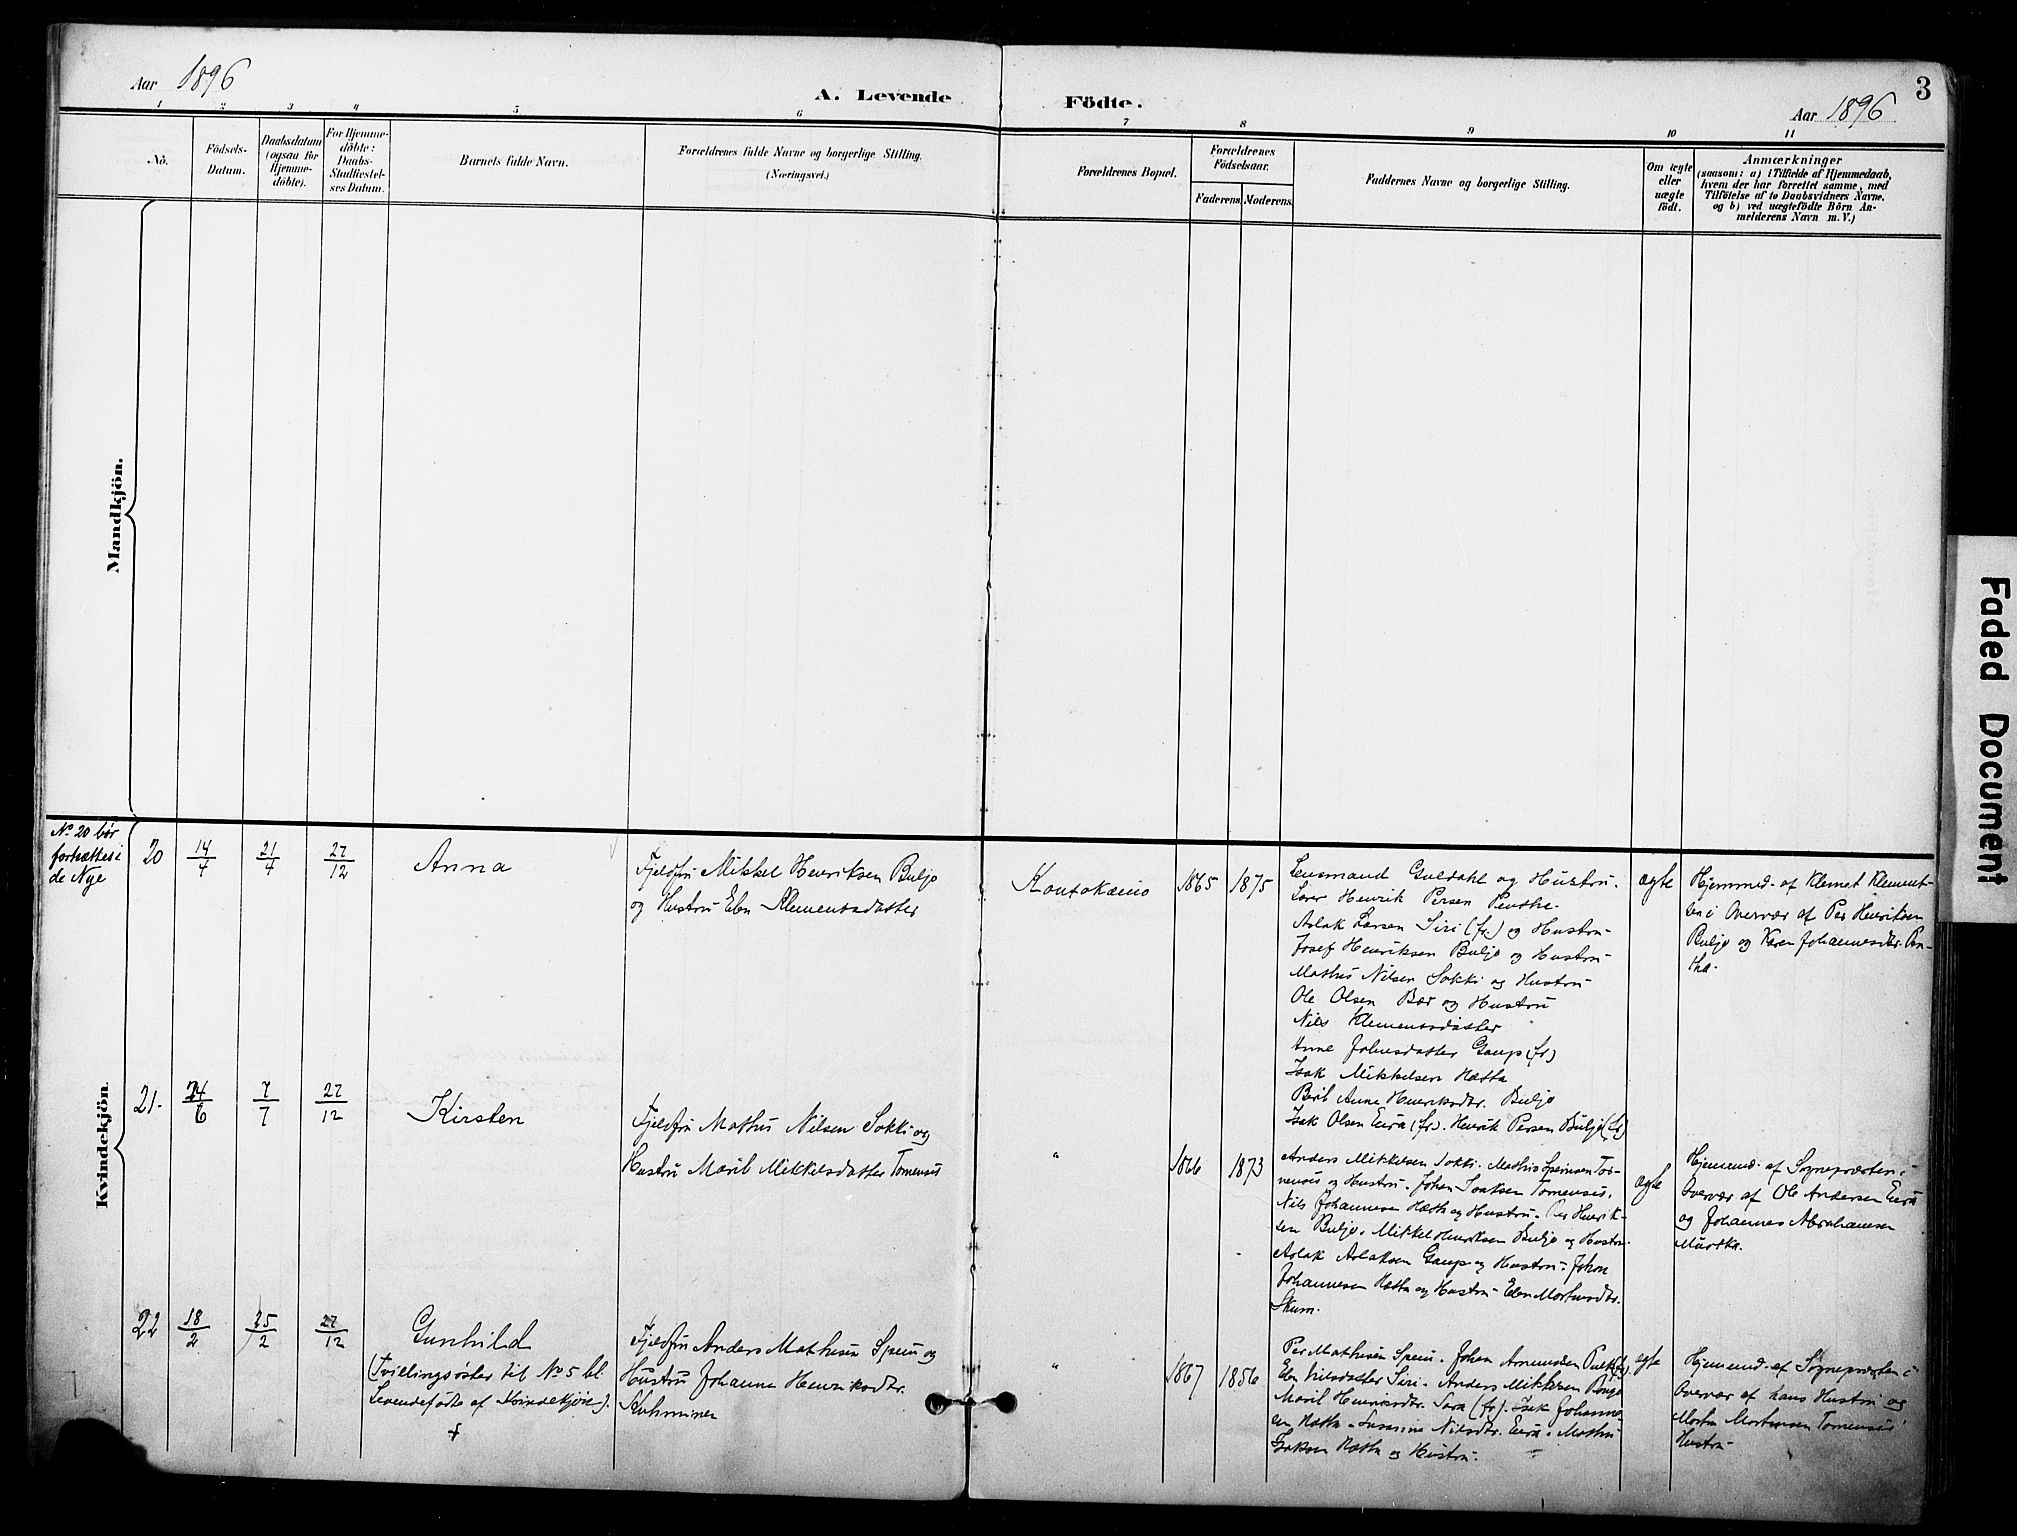 Aar 1896
A. Levende Födte.
Aar 1896
3
1 2 3 4 5 6 7 8 9 10 11
No.
Födsels-
Datum.
Daabsdatum
(ogsaa for
Hjemme-
döbte).
For Hjemme-
döbte:
Daabs-
Stadfæstel-
ses Datum.
Barnets fulde Navn.
Forældrenes fulde Navne og borgerlige Stilling.
(Næringsvei.)
Forældrenes Bopæl.
Forældrenes
Födselsaar.
Faderens.
Moderens.
Faddernes Navne og borgerlige Stilling.
Om ægte
eller
uægte
födt.
Anmærkninger
(saasom: a) i Tilfælde af Hjemmedaab,
hvem der har forrettet samme, med
Tilföielse af to Daabsvidners Navne.
og b) ved uægtefödte Börn An-
melderens Navn m. V.)
Mandkjön.
Kvindekjön.
No. 20 bør
fortsættes i
de Nye
20
14/4
21/4
27/12
Anna
Fjeldfin Mikkel Henriksen Buljo
og Hustru Elen Klemensdatter
Koutokæino
1865
1875
Lensmand Guldahl og Hustru.
Lærer Henrik Persen Pentha.
Aslak Larsen Siri (fr.) og Hustru
Josef Henriksen Buljo og Hustru
Mathis Nilsen Sokki og Hustru
Ole Olsen Bær og Hustru
Nils Klemensdatter
Anne Johnsdatter Gaup (fr)
Isak Mikkelsen Hætta
Berit Anne Henriksdtr. Buljo
Isak Olsen Eira (fr). Henrik Persen Buljo (fr)
ægte
Hjemmed. af Klemet Klemet-
sen i Overvær af Per Henriksen
Buljo og Karen Johannesdtr. Pen-
tha.
21.
24/6
7/7
27/12
Kirsten
Fjeldfin Mathis Nilsen Sokki og
Hustru Marit Mikkelsdatter Tornensis
"
1866
1873
Anders Mikkelsen Sokki. Mathis Tor-
nensis og Hustru. Johan Isaksen Tornensis.
Nils Johannesen Hætta og Hustru. Per Henrik-
sen Buljo. Mikkel Henriksen Buljo og Hustru.
Aslak Aslaksen Gaup og Hustru. Johan
Johannesen Hætta og Hustru Elen Mortensdtr.
Skum.
ægte
Hjemmed. af Sognepræsten i
Overvær af Ole Andersen Eira
og Johannes Abrahamsen
22
18/2
25/2
27/12
Gunhild
(Tvillingsøster til No 5 bl.
Levendefødte af Kvindekjøn).
Fjeldfin Anders Mathisen Spein og
Hustru Johanne Henriksdtr.
"
1867
1856
Per Mathisen Spein. Johan Amundsen
Elen Nilsdatter Siri. Anders Mikkelsen
Marit Henriksdtr. Sara (fr). Isak Johanne-
sen Hætta. Susanne Nilsdtr. Eira. Mathis
Isaksen Hætta og Hustru.
ægte
Hjemmed. af Sognepræsten i
Overvær af hans Hustru og
Morten Mortensen Tornensis'
Hustru
Faded Document